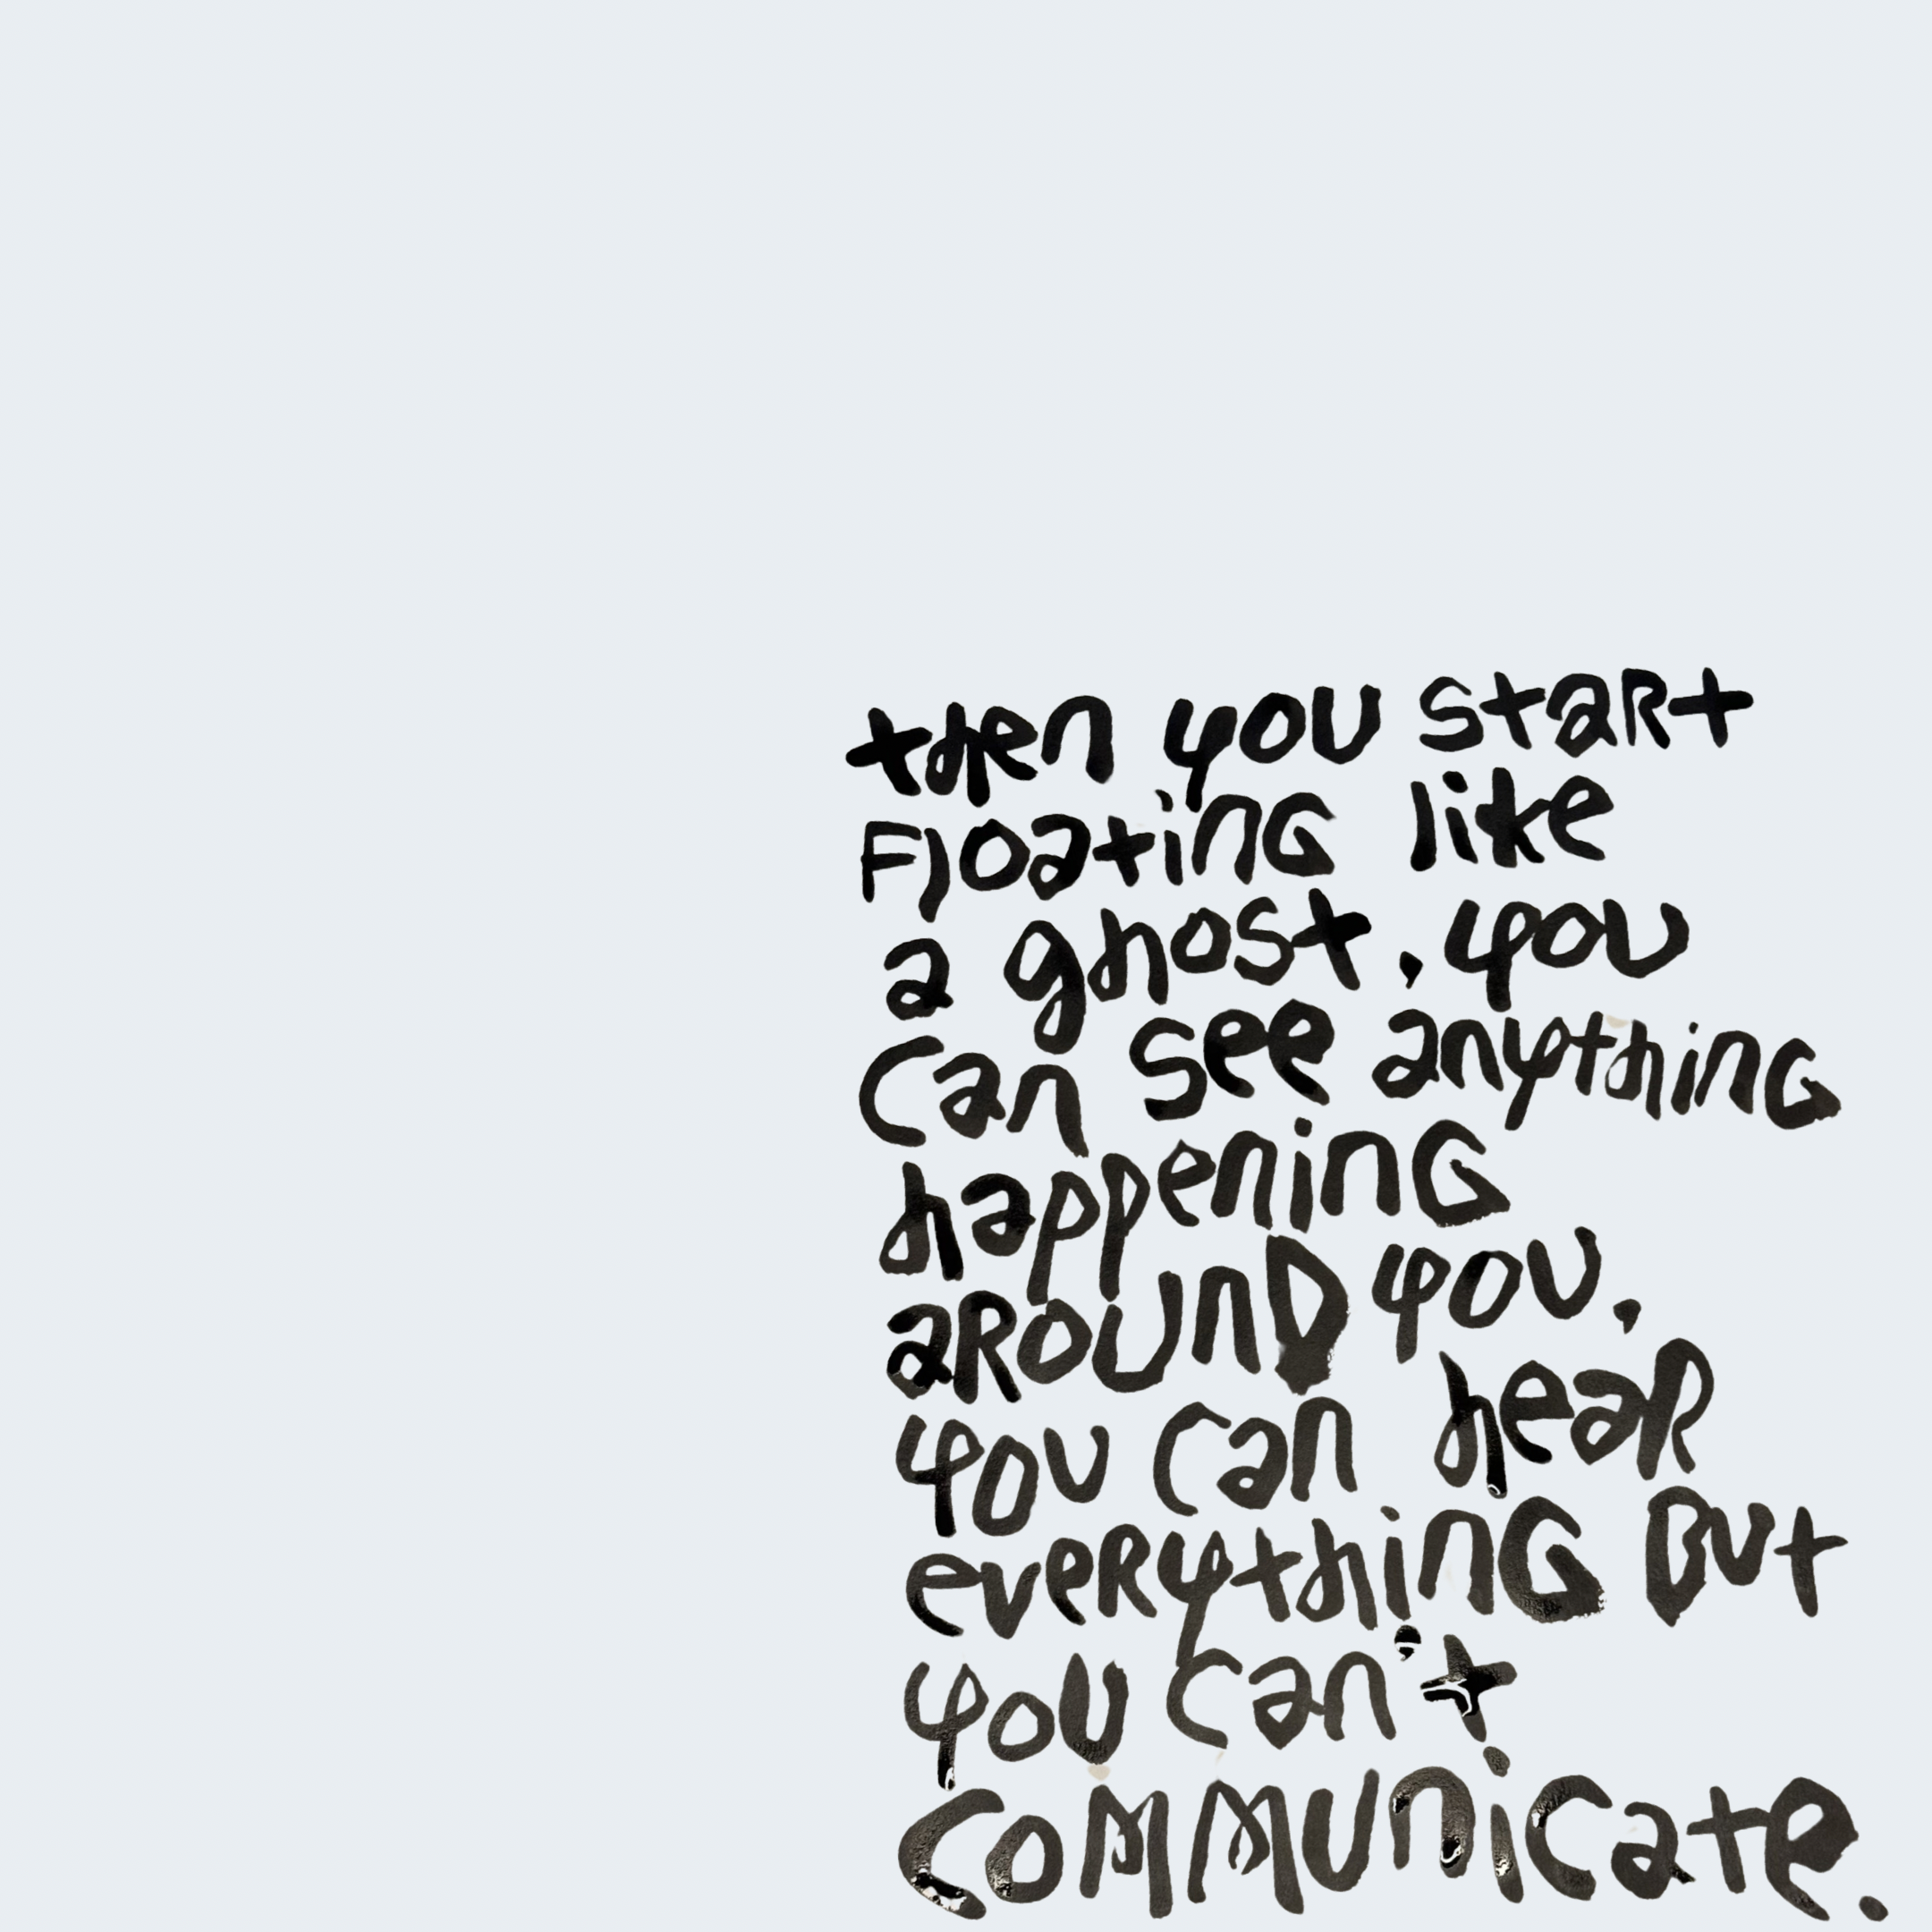 then you start
Floating like
a ghost, you
can see anything
happening
aRounD you,
you can heaR
eveRything But
you can't
coMMunicate.